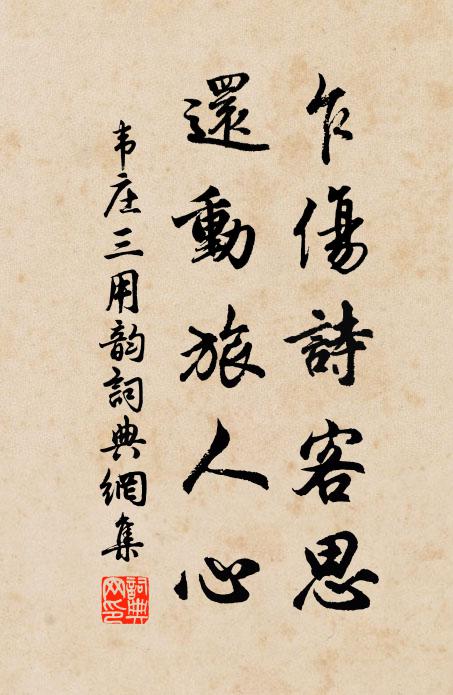 乍傷詩客思
還動旅人心
韦庄三用韵詞典網集
詞典
网印